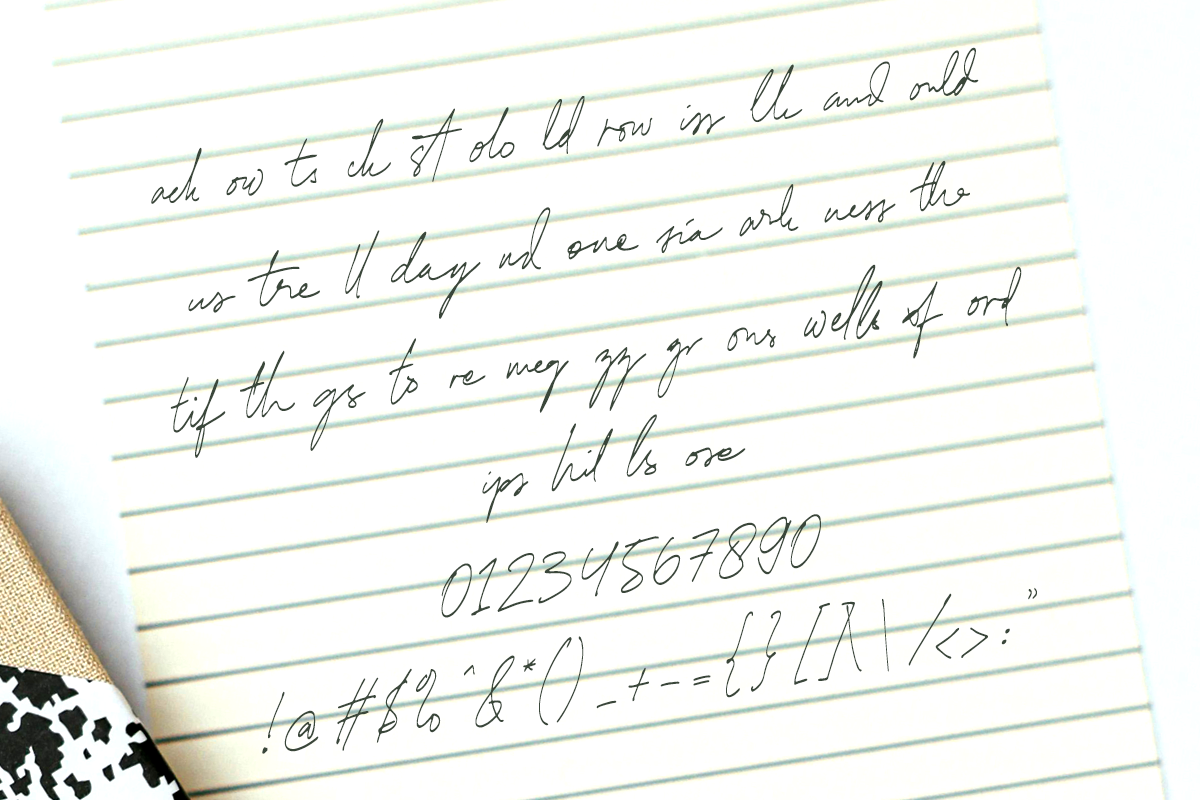 ack ow ts ck st olo ld row iss lk and ould
us tre ll day nd one sia ark ness the
tif th gs to re meg zz gr ons wells of ord
ips hil ls ose
01234567890
!@#$%^&*()_+-={}[]\|/<>:”